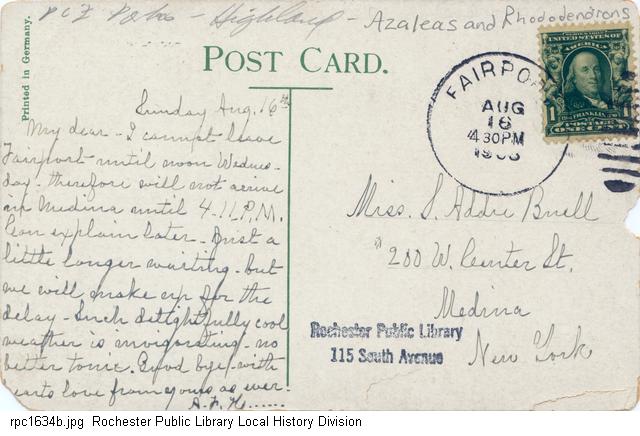 Rcz Parks - Highland - Azaleas and Rhododendrons
Printed in Germany.
POST CARD.
FAIRPORT
AUG
16
4 30 PM
UNITED STATES OF AMERICA
FRANKLIN
POSTAGE
ONE CENT
Sunday Aug. 16th
My dear - I cannot leave
Fairport until noon Wednes-
day - therefore will not arrive
in Medina until 4.11 P.M.
Can explain later. Just a
little longer waiting - but
we will make up for the
delay - Such delightfully cool
weather is invigorating - no
better tonic. Good bye - with
love from yours as ever.
A.F.H.
Miss. S. Addie Buell
# 200 W. Center St.
Medina
New York
Rochester Public Library
115 South Avenue
rpc1634b.jpg Rochester Public Library Local History Division